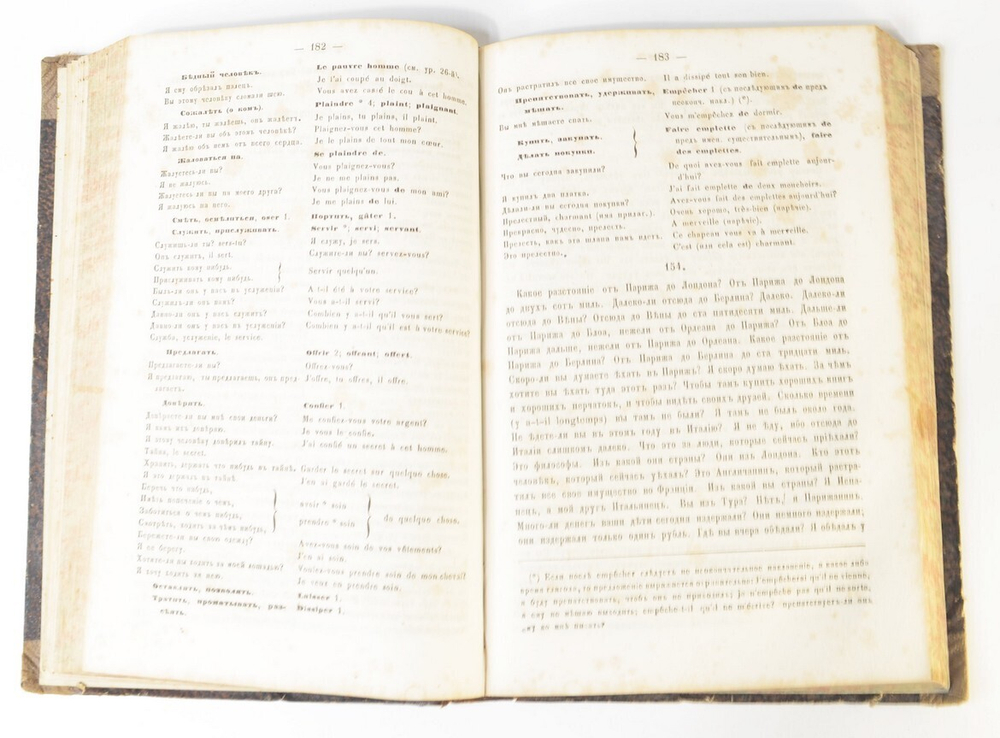 — 182 —
Бѣдный человѣкъ. Le pauvre homme (см. ур. 26-й).
Я ему обрѣзалъ палецъ. Je l'ai coupé au doigt.
Вы этому человѣку сломали шею. Vous avez cassé le cou à cet homme.
Сожалѣть (о комъ). Plaindre * 4; plaint; plaignant.
Я жалѣю, ты жалѣешь, онъ жалѣетъ. Je plains, tu plains, il plaint.
Жалѣете-ли вы объ этомъ человѣкѣ? Plaignez-vous cet homme?
Я жалѣю объ немъ отъ всего сердца. Je le plains de tout mon cœur.
Жаловаться на. Se plaindre de.
Жалуетесь-ли вы? Vous plaignez-vous?
Я не жалуюсь. Je ne me plains pas.
Жалуетесь-ли вы на моего друга? Vous plaignez-vous de mon ami?
Я жалуюсь на него. Je me plains de lui.
Смѣть, осмѣлиться, oser 1. Портить, gâter 1.
Служить, прислуживать. Servir *; servi; servant.
Служишь-ли ты? sers-tu? Я служу, je sers.
Онъ служитъ, il sert. Служите-ли вы? servez-vous?
Служить кому нибудь.
Прислуживать кому нибудь. } Servir quelqu'un.
Былъ-ли онъ у васъ въ услуженіи? A-t-il été à votre service?
Служилъ-ли онъ вамъ? Vous a-t-il servi?
Давно-ли онъ у васъ служитъ? Combien y a-t-il qu'il vous sert?
Давно-ли онъ у васъ въ услуженіи? Combien y a-t-il qu'il est à votre service?
Служба, услуженіе, le service.
Предлагать. Offrir 2; offrant; offert.
Предлагаете-ли вы? Offrez-vous?
Я предлагаю, ты предлагаешь, онъ предлагаетъ. J'offre, tu offres, il offre.
Довѣрить. Confier 1.
Довѣряете-ли вы мнѣ свои деньги? Me confiez-vous votre argent?
Я вамъ ихъ довѣряю. Je vous le confie.
Я этому человѣку довѣрилъ тайну. J'ai confié un secret à cet homme.
Тайна, le secret.
Хранить, держать что нибудь въ тайнѣ. Garder le secret sur quelque chose.
Я это держалъ въ тайнѣ. J'en ai gardé le secret.
Беречь что нибудь,
Имѣть попеченіе о чемъ, avoir * soin
Заботиться о чемъ нибудь, } } de quelque chose.
Смотрѣть, ходить за чѣмъ нибудь, prendre * soin
Бережете-ли вы свою одежду? Avez-vous soin de vos vêtements?
Я ее берегу. J'en ai soin.
Хотите-ли вы ходить за моей лошадью? Voulez-vous prendre soin de mon cheval?
Я хочу ходить за нею. Je veux en prendre soin.
Оставлять, позволить. Laisser 1.
Тратить, проматывать, разсѣять. Dissiper 1.
— 183 —
Онъ растратилъ все свое имущество. Il a dissipé tout son bien.
Препятствовать, удерживать, мѣшать. Empêcher 1 (съ послѣдующимъ de предъ неоконч. накл.) (*).
Вы мнѣ мѣшаете спать. Vous m'empêchez de dormir.
Купить, закупать.
Дѣлать покупки. } Faire emplette (съ послѣдующимъ de предъ имен. существительнымъ), faire des emplettes.
Что вы сегодня закупили? De quoi avez-vous fait emplette aujourd'hui?
Я купилъ два платка. J'ai fait emplette de deux mouchoirs.
Дѣлали-ли вы сегодня покупки? Avez-vous fait des emplettes aujourd'hui?
Прелестный, charmant (имя прилаг.). Очень хорошо, très-bien (нарѣчіе).
Прекрасно, чудесно, прелесть. A merveille (нарѣчіе).
Прелесть, какъ эта шляпа вамъ идетъ. Ce chapeau vous va à merveille.
Это прелестно. C'est (или cela est) charmant.
151.
Какое разстояніе отъ Парижа до Лондона? Отъ Парижа до Лондона
до двухъ сотъ миль. Далеко-ли отсюда до Берлина? Далеко. Далеко-ли
отсюда до Вѣны? Отсюда до Вѣны до ста пятидесяти миль. Дальше-ли
отъ Парижа до Блоа, нежели отъ Орлеана до Парижа? Отъ Блоа до
Парижа дальше, нежели отъ Парижа до Орлеана. Какое разстояніе отъ
Парижа до Берлина? Отъ Парижа до Берлина до ста тридцати миль.
Скоро-ли вы думаете ѣхать въ Парижъ? Я скоро думаю ѣхать. За чѣмъ
хотите вы ѣхать туда этотъ разъ? Чтобы тамъ купить хорошихъ книгъ
и хорошихъ перчатокъ, и чтобы видѣть своихъ друзей. Сколько времени
(y a-t-il longtemps) вы тамъ не были? Я тамъ не былъ около года.
Не ѣдете-ли вы въ этомъ году въ Италію? Я не ѣду, ибо отсюда до
Италіи слишкомъ далеко. Что это за люди, которые сейчасъ пріѣхали?
Это философы. Изъ какой они страны? Они изъ Лондона. Кто этотъ
человѣкъ, который сейчасъ уѣхалъ? Это Англичанинъ, который растра-
тилъ все свое имущество во Франціи. Изъ какой вы страны? Я Испа-
нецъ, а мой другъ Итальянецъ. Вы изъ Тура? Нѣтъ, я Парижанинъ.
Много-ли денегъ ваши дѣти сегодня издержали? Они немного издержали;
они издержали только одинъ рубль. Гдѣ вы вчера обѣдали? Я обѣдалъ у
(*) Если послѣ empêcher слѣдуетъ не неокончательное наклоненіе, а какое либо
время глагола, то предложеніе выражается отрицательно: j'empêcherai qu'il ne vienne,
я буду препятствовать, чтобъ онъ не приходилъ; je n'empêche pas qu'il ne sorte,
я ему не мѣшаю выходить; empêche-t-il qu'il ne m'écrive? препятствуетъ-ли онъ
ему ко мнѣ писать?